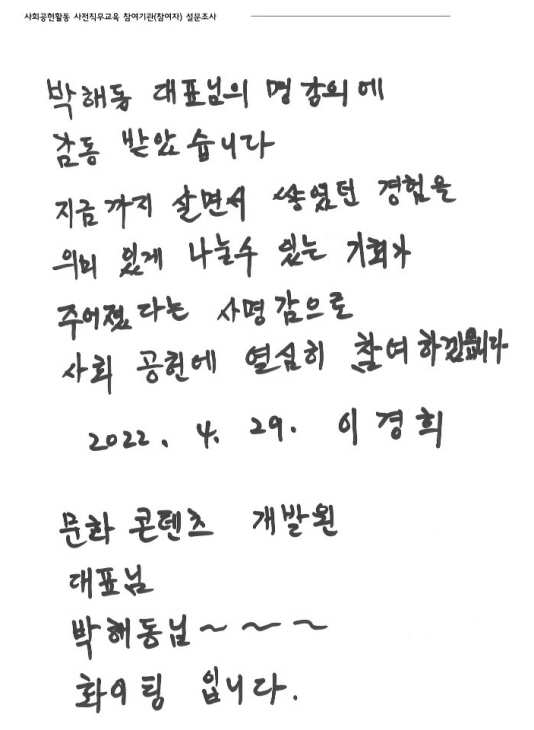 사회공헌활동 사전직무교육 참여기관(참여자) 설문조사
박해동 대표님의 명강의에
감동 받았습니다
지금까지 살면서 쌓였던 경험을
의미 있게 나눌수 있는 기회가
주어졌다는 사명감으로
사회 공헌에 열심히 참여하겠습니다
2022. 4. 29. 이경희
문화 콘텐츠 개발원
대표님
박해동님~~~
화이팅 입니다.